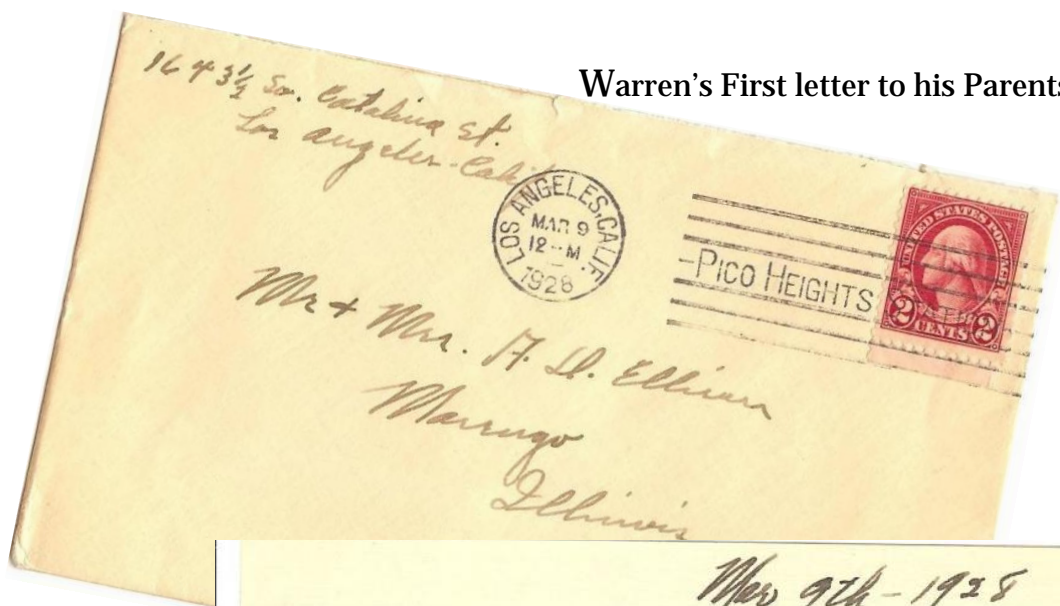 Warren's First letter to his Parents
1643½ So. Catalina St.
Los Angeles - Calif
LOS ANGELES, CALIF.
MAR 9
12-M
1928
-PICO HEIGHTS
UNITED STATES POSTAGE
2 CENTS 2
Mr + Mrs. D.
Marengo
Illinois
Mar 9th - 1928